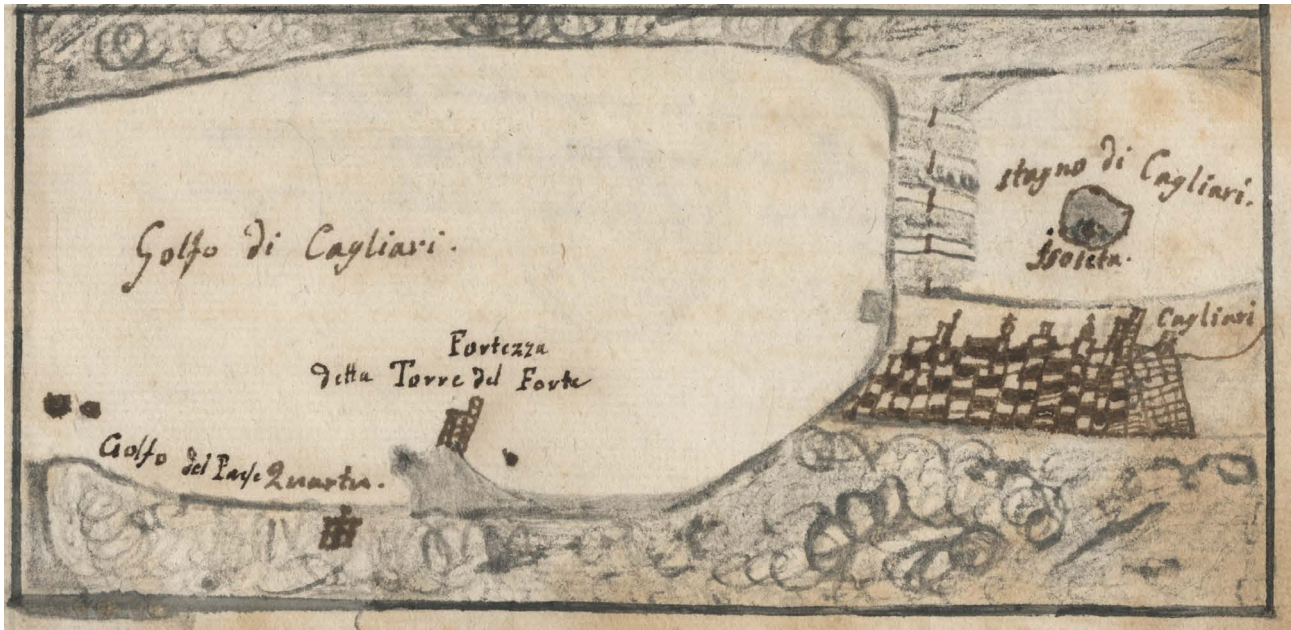 Golfo di Cagliari.
stagno di Cagliari.
Isoleta.
Cagliari
Fortezza
detta Torre del Forte
Golfo del Paese Quartu.